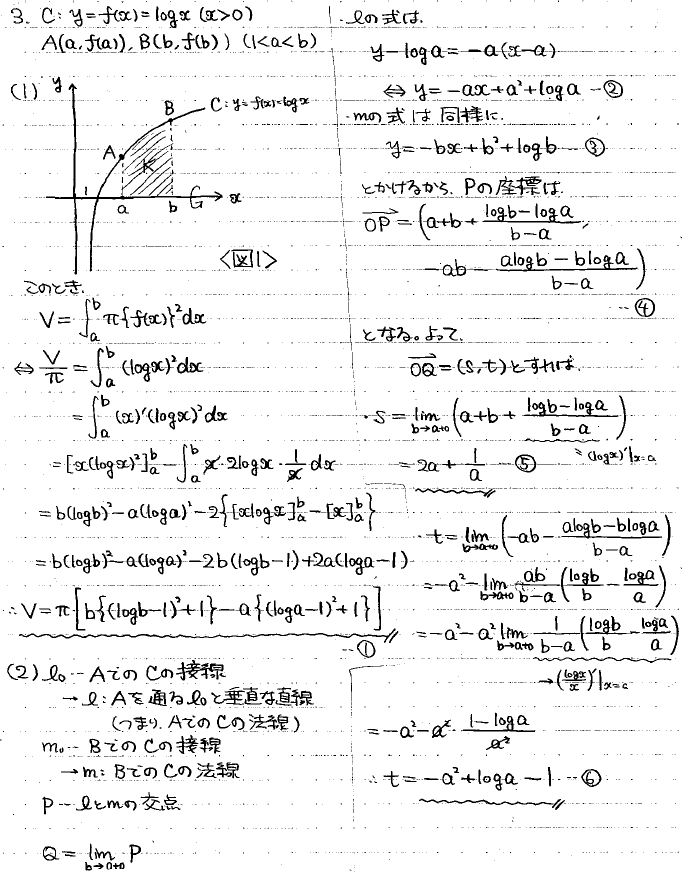 3. C: y=f(x)=logx (x>0)
A(a, f(a)), B(b, f(b)) (1<a<b)
(1)
y
B
C: y=f(x)=logx
A
K
1
a
b
G
x
<図1>
このとき.
V=∫_a^b π{f(x)}²dx
⇔ V/π = ∫_a^b (logx)²dx
= ∫_a^b (x)'(logx)²dx
= [x(logx)²]_a^b - ∫_a^b x・2logx・1/x dx
= b(logb)² - a(loga)² - 2{[xlogx]_a^b - [x]_a^b}
= b(logb)² - a(loga)² - 2b(logb-1) + 2a(loga-1)
∴ V = π[b{(logb-1)²+1} - a{(loga-1)²+1}]
…①
(2) l₀… AでのCの接線
→ l: Aを通るl₀と垂直な直線
(つまり. AでのCの法線)
m₀… BでのCの接線
→ m: BでのCの法線
P… lとmの交点
Q = lim_{b→a+0} P
・lの式は.
y-loga = -a(x-a)
⇔ y = -ax+a²+loga …②
・mの式は同様に.
y = -bx+b²+logb …③
とかけるから. Pの座標は.
OP→ = (a+b+ (logb-loga)/(b-a),
-ab - (alogb-bloga)/(b-a))
…④
となる。よって.
OQ→ = (s, t) とすれば.
・s = lim_{b→a+0} (a+b+ (logb-loga)/(b-a))
= (logx)'|x=a
= 2a + 1/a …⑤
・t = lim_{b→a+0} (-ab - (alogb-bloga)/(b-a))
= -a² - lim_{b→a+0} ab/(b-a) (logb/b - loga/a)
= -a² - a² lim_{b→a+0} 1/(b-a) (logb/b - loga/a)
→ (logx/x)'|x=a
= -a² - a²・(1-loga)/a²
∴ t = -a²+loga-1 …⑥